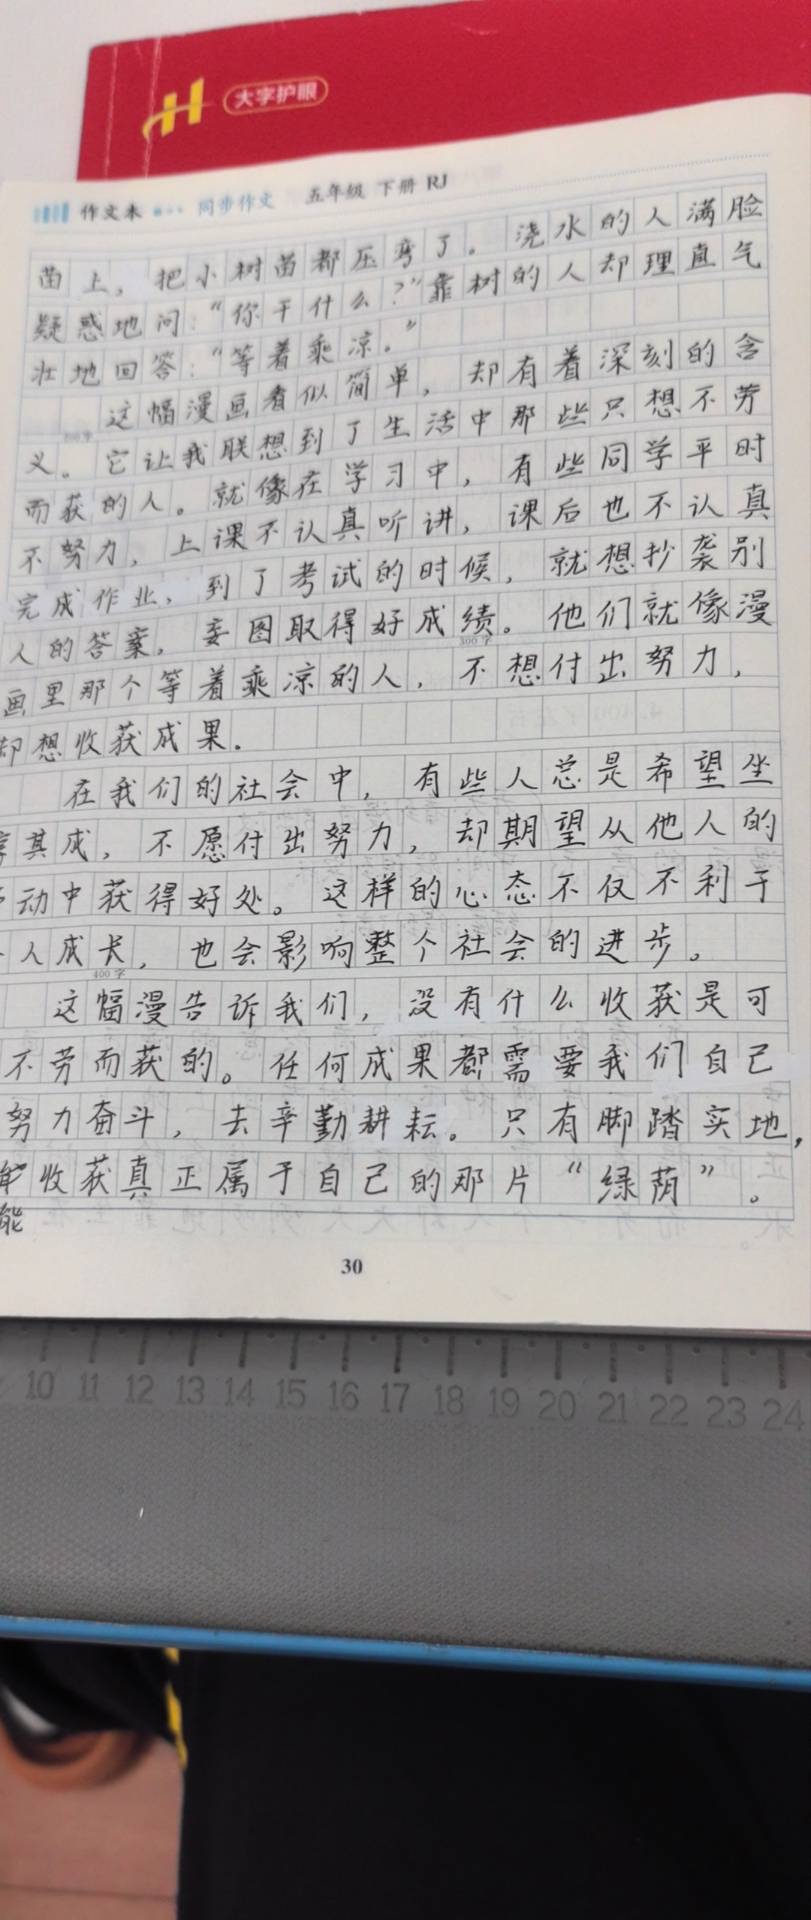 大字护眼
作文本 同步作文 五年级 下册 RJ
苗上，把小树苗都压弯了。浇水的人满脸
疑惑地问：“你干什么？”靠树的人却理直气
壮地回答：“等着乘凉。”
这幅漫画看似简单，却有着深刻的含
义。它让我联想到了生活中那些只想不劳
而获的人。就像在学习中，有些同学平时
不努力，上课不认真听讲，课后也不认真
完成作业，到了考试的时候，就想抄袭别
人的答案，妄图取得好成绩。他们就像漫
300字
画里那个等着乘凉的人，不想付出努力，
却想收获成果。
在我们的社会中，有些人总是希望坐
享其成，不愿付出努力，却期望从他人的
动中获得好处。这样的心态不仅不利于
人成长，也会影响整个社会的进步。
400字
这幅漫告诉我们，没有什么收获是可
不劳而获的。任何成果都需要我们自己
努力奋斗，去辛勤耕耘。只有脚踏实地，
收获真正属于自己的那片“绿荫”。
能
30
10 11 12 13 14 15 16 17 18 19 20 21 22 23 24